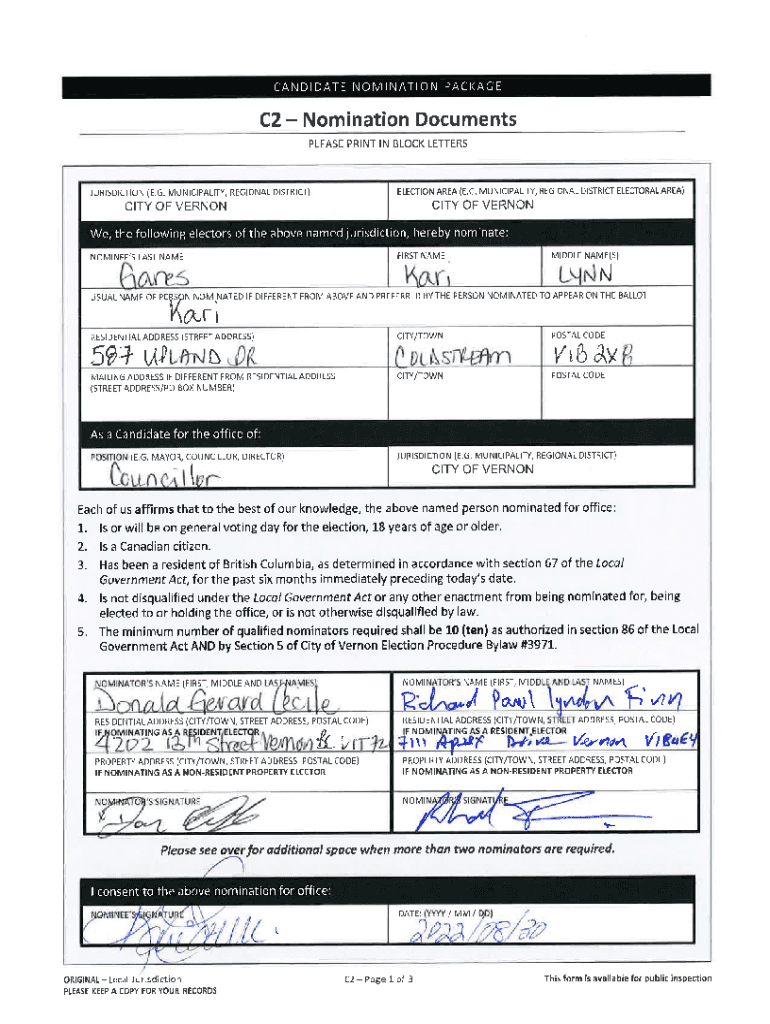 CANDIDATE NOMINATION PACKAGE
C2 – Nomination Documents
PLEASE PRINT IN BLOCK LETTERS
JURISDICTION (E.G. MUNICIPALITY, REGIONAL DISTRICT) ELECTION AREA (E.G. MUNICIPALITY, REGIONAL DISTRICT ELECTORAL AREA)
CITY OF VERNON CITY OF VERNON
We, the following electors of the above named jurisdiction, hereby nominate:
NOMINEE'S LAST NAME FIRST NAME MIDDLE NAME(S)
Gares Kari LYNN
USUAL NAME OF PERSON NOMINATED IF DIFFERENT FROM ABOVE AND PREFERRED BY THE PERSON NOMINATED TO APPEAR ON THE BALLOT
Kari
RESIDENTIAL ADDRESS (STREET ADDRESS) CITY/TOWN POSTAL CODE
587 UPLAND DR COLDSTREAM V1B 2X8
MAILING ADDRESS IF DIFFERENT FROM RESIDENTIAL ADDRESS CITY/TOWN POSTAL CODE
(STREET ADDRESS/PO BOX NUMBER)
As a Candidate for the office of:
POSITION (E.G. MAYOR, COUNCILLOR, DIRECTOR) JURISDICTION (E.G. MUNICIPALITY, REGIONAL DISTRICT)
Councillor CITY OF VERNON
Each of us affirms that to the best of our knowledge, the above named person nominated for office:
1. Is or will be on general voting day for the election, 18 years of age or older.
2. Is a Canadian citizen.
3. Has been a resident of British Columbia, as determined in accordance with section 67 of the Local
Government Act, for the past six months immediately preceding today's date.
4. Is not disqualified under the Local Government Act or any other enactment from being nominated for, being
elected to or holding the office, or is not otherwise disqualified by law.
5. The minimum number of qualified nominators required shall be 10 (ten) as authorized in section 86 of the Local
Government Act AND by Section 5 of City of Vernon Election Procedure Bylaw #3971.
NOMINATOR'S NAME (FIRST, MIDDLE AND LAST NAMES) NOMINATOR'S NAME (FIRST, MIDDLE AND LAST NAMES)
Donald Gerard Cecile Richard Paul Lyndon Finn
RESIDENTIAL ADDRESS (CITY/TOWN, STREET ADDRESS, POSTAL CODE) RESIDENTIAL ADDRESS (CITY/TOWN, STREET ADDRESS, POSTAL CODE)
IF NOMINATING AS A RESIDENT ELECTOR IF NOMINATING AS A RESIDENT ELECTOR
4202 13th Street Vernon BC 7111 Apex Drive Vernon
PROPERTY ADDRESS (CITY/TOWN, STREET ADDRESS, POSTAL CODE) PROPERTY ADDRESS (CITY/TOWN, STREET ADDRESS, POSTAL CODE)
IF NOMINATING AS A NON-RESIDENT PROPERTY ELECTOR IF NOMINATING AS A NON-RESIDENT PROPERTY ELECTOR
NOMINATOR'S SIGNATURE NOMINATOR'S SIGNATURE
Please see over for additional space when more than two nominators are required.
I consent to the above nomination for office:
NOMINEE'S SIGNATURE DATE: (YYYY / MM / DD)
2022/08/30
ORIGINAL – Local Jurisdiction C2 – Page 1 of 3 This form is available for public inspection
PLEASE KEEP A COPY FOR YOUR RECORDS